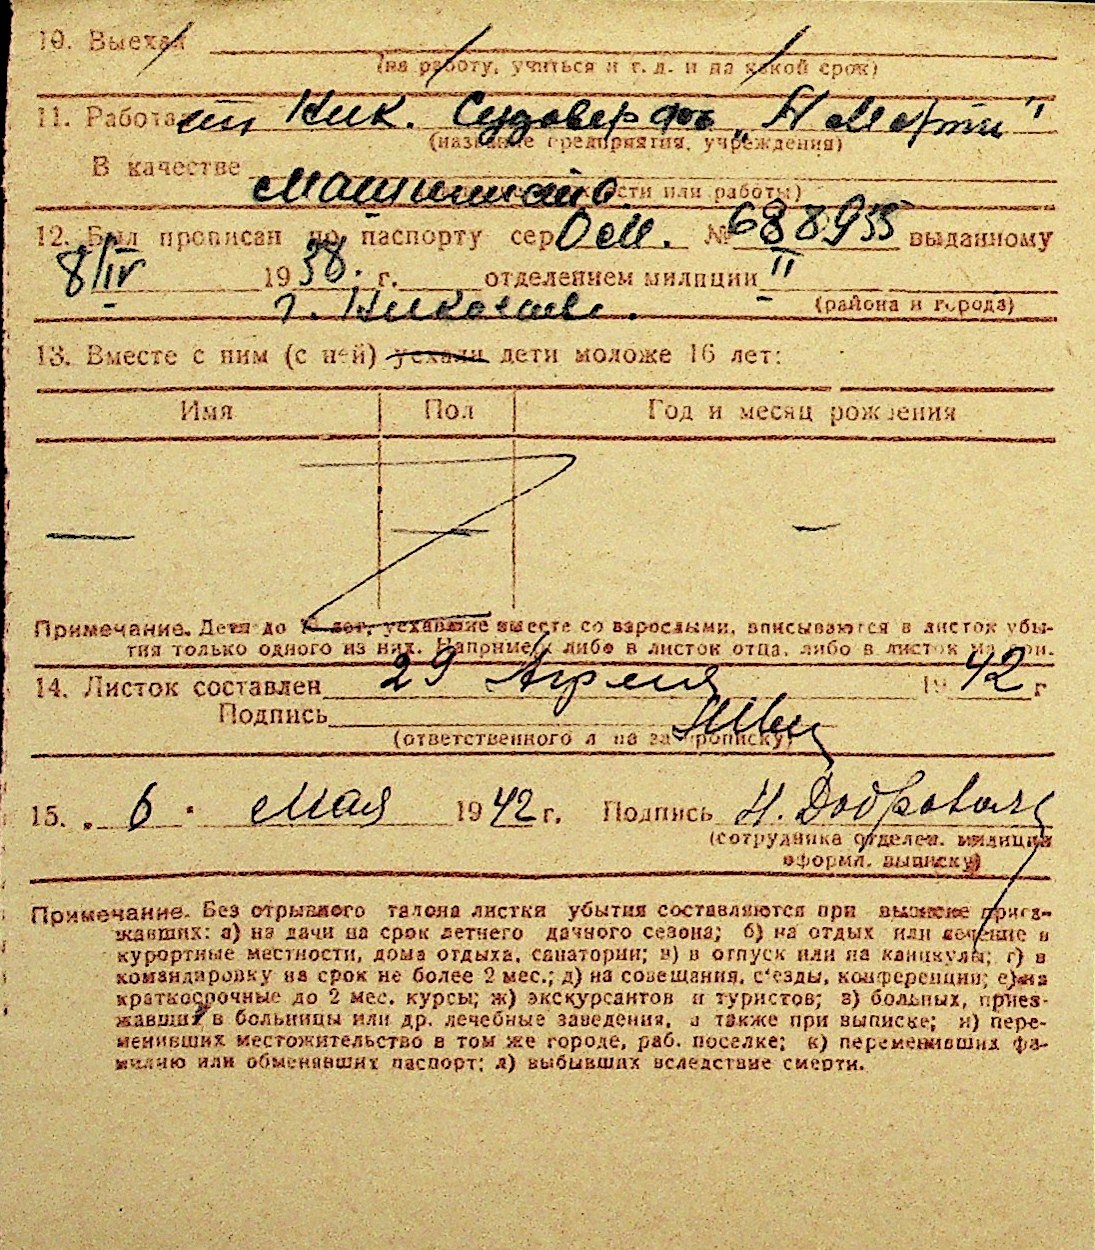 10. Выехал
(на работу, учиться и т. д. и на какой срок)
11. Работа ст. Ник. Судоверфь „А Марти"
(название предприятия, учреждения)
В качестве
сти или работы)
12. Был прописан по паспорту сер № 688955 выданному
8/IV 1938. г. отделением милиции II
г. Николаев.
(района и города)
13. Вместе с ним (с ней) уехали дети моложе 16 лет:
Имя Пол Год и месяц рождения
— — —
Примечание. Дети до лет, уехавшие вместе со взрослыми, вписываются в листок убы-
тия только одного из них. Например, либо в листок отца, либо в листок матери.
14. Листок составлен 29 Апреля 1942 г
Подпись
(ответственного л на за прописку)
15. 6. Мая 1942 г. Подпись Н. Добровол
(сотрудника отделен. милиции
оформл. выписку)
Примечание. Без отрывного талона листки убытия составляются при выписке приез-
жавших: а) на дачи на срок летнего дачного сезона; б) на отдых или лечение в
курортные местности, дома отдыха, санатории; в) в отпуск или на каникулы; г) в
командировку на срок не более 2 мес.; д) на совещания, с'езды, конференции; е) на
краткосрочные до 2 мес. курсы; ж) экскурсантов и туристов; з) больных, приез-
жавших в больницы или др. лечебные заведения, а также при выписке; и) пере-
менивших местожительство в том же городе, раб. поселке; к) переменивших фа-
милию или обменявших паспорт; л) выбывших вследствие смерти.